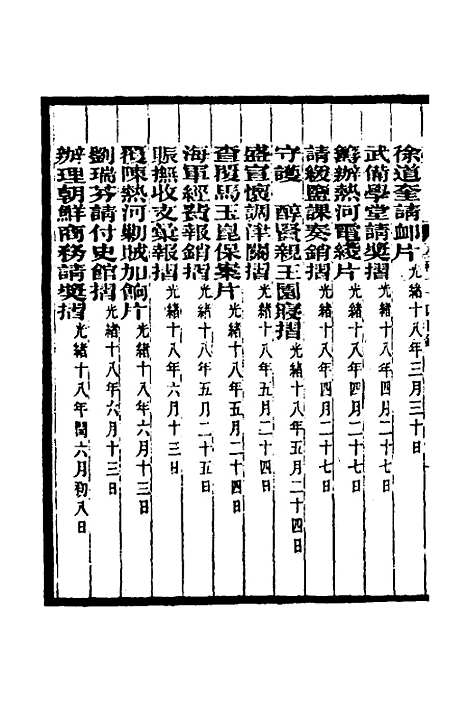 徐道奎請卹片光緒十八年三月三十日
武備學堂請奬摺光緒十八年四月二十七日
籌辦熱河電綫片光緒十八年四月二十七日
請緩鹽課奏銷摺光緒十八年四月二十七日
守護　醇賢親王園寢摺光緒十八年五月二十四日
盛宣懷調津關摺光緒十八年五月二十四日
查覆馬玉崑保案片光緒十八年五月二十四日
海軍經費報銷摺光緒十八年五月二十五日
賑撫收支彙報摺光緒十八年六月十三日
覆陳熱河剿賊加餉片光緒十八年六月十三日
劉瑞芬請付史館摺光緒十八年六月十三日
辦理朝鮮商務請奬摺光緒十八年閏六月初八日